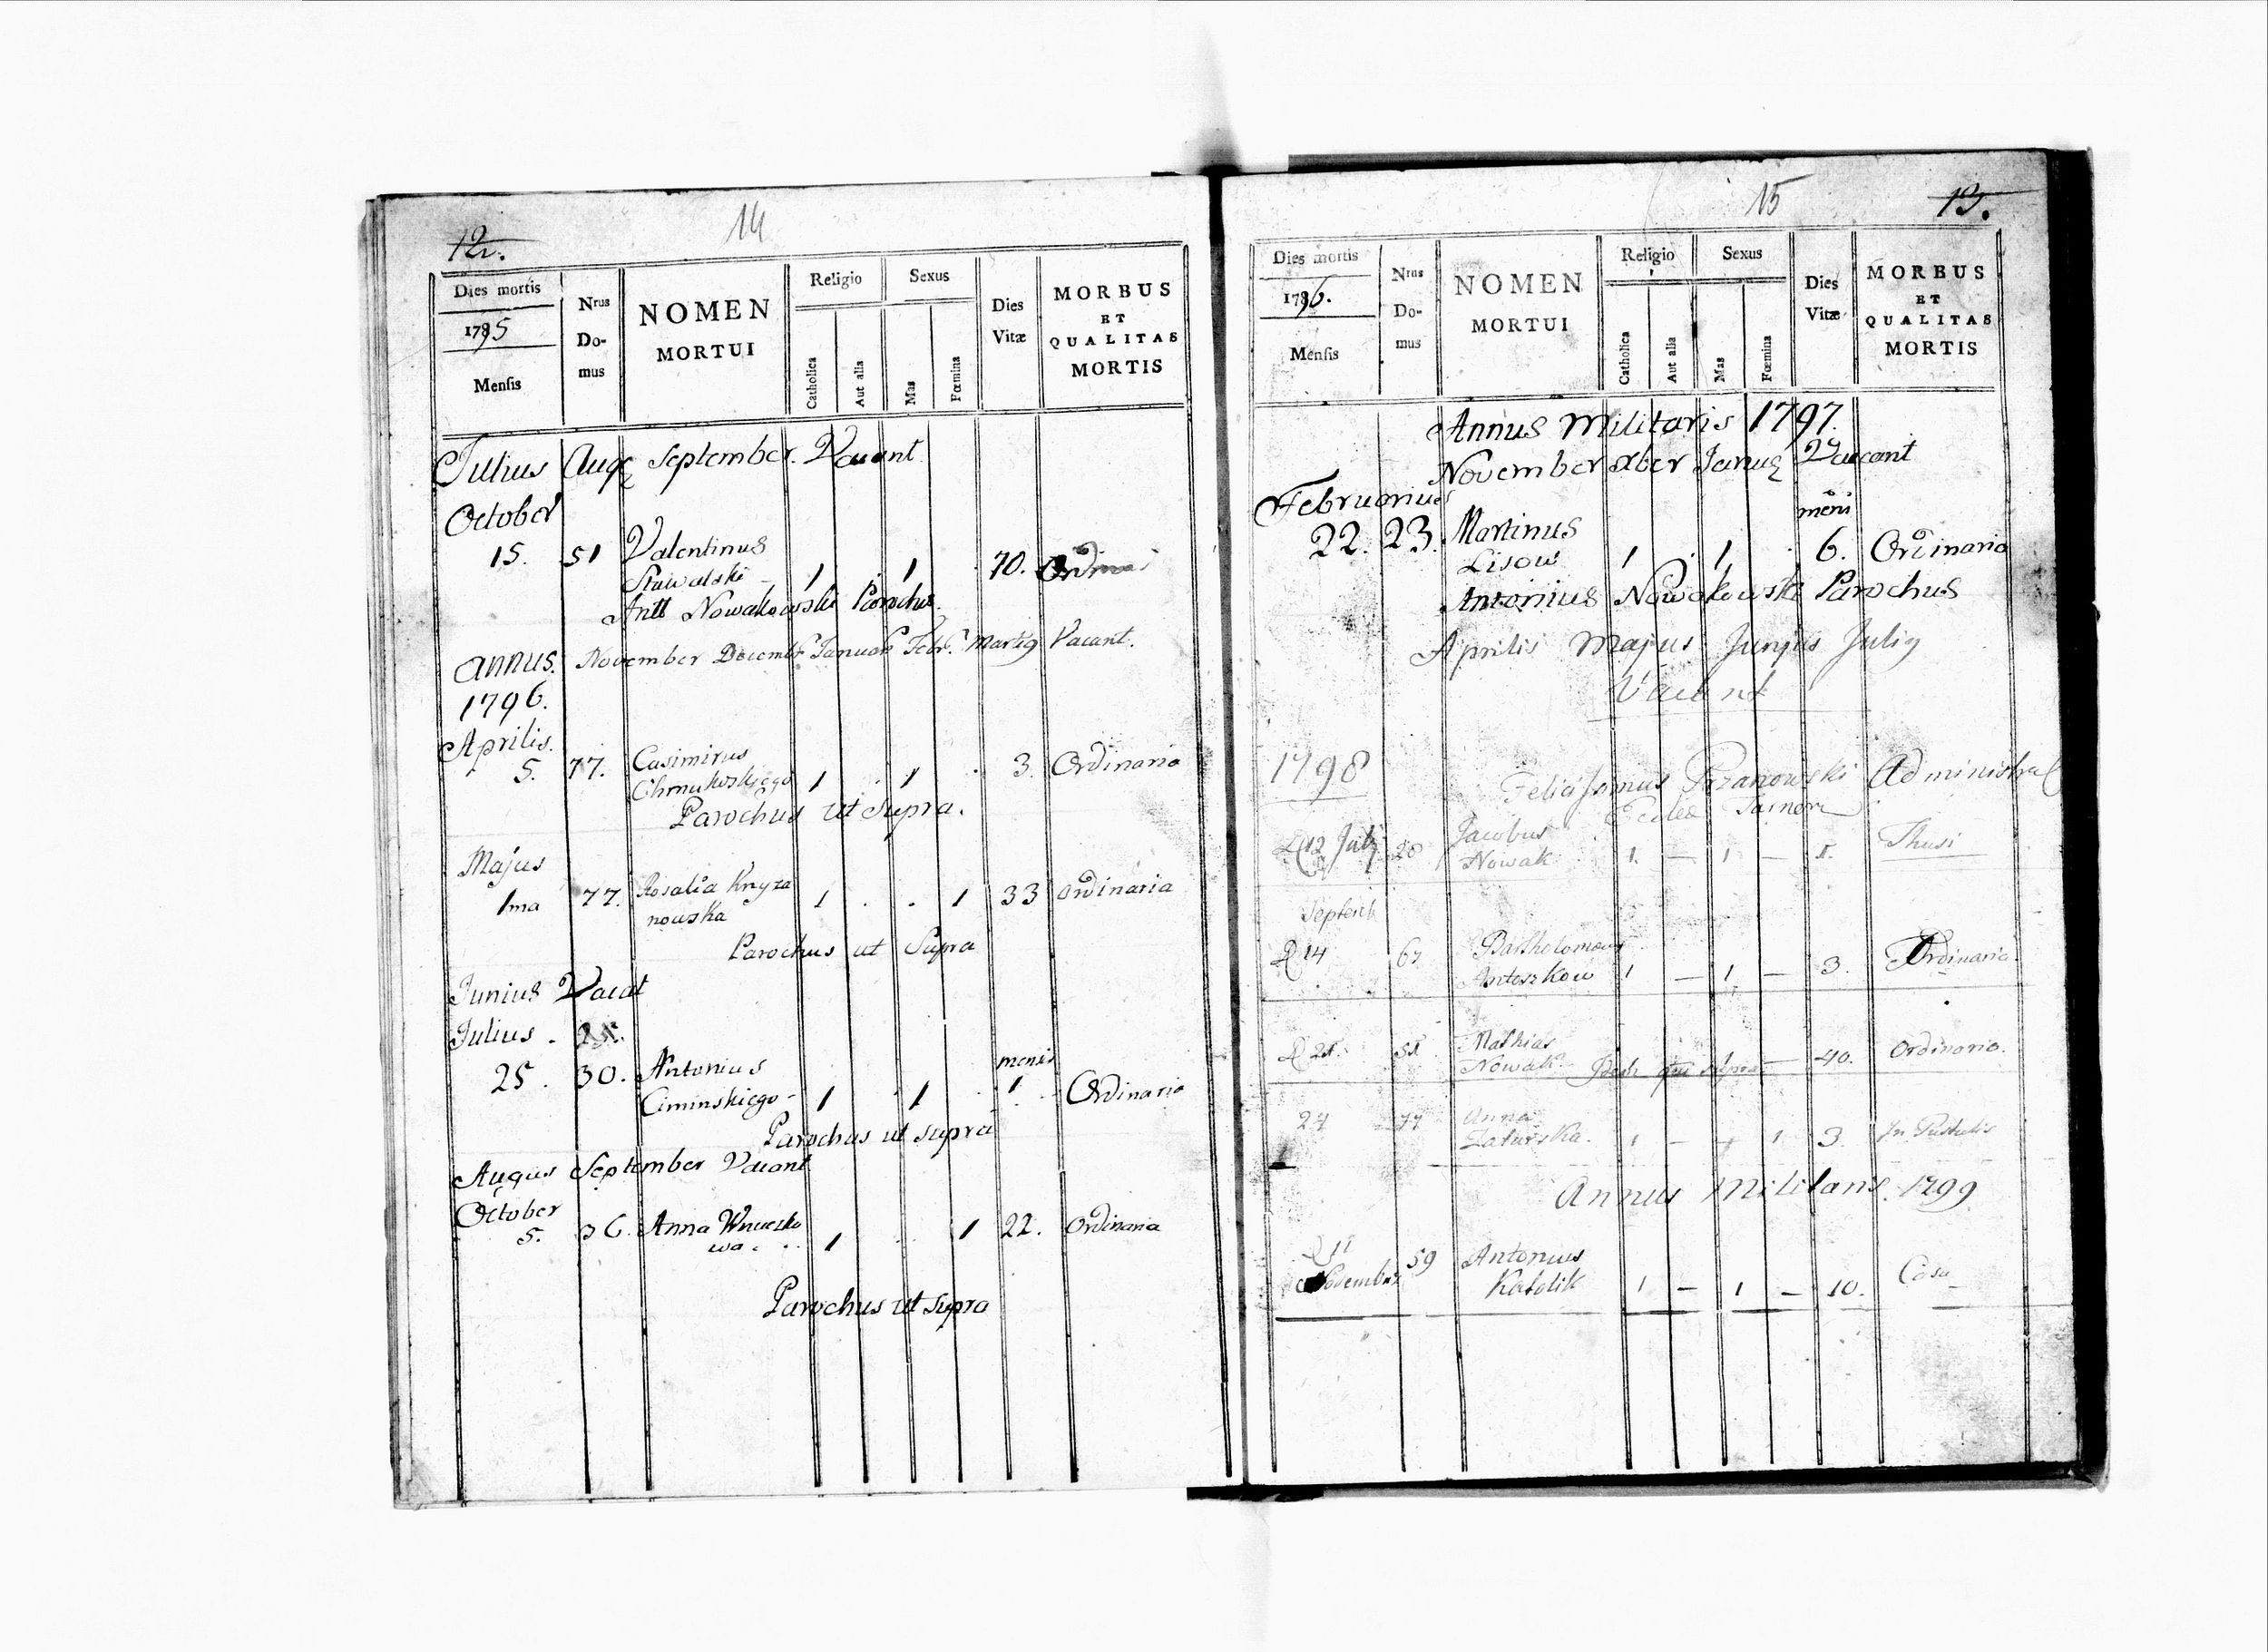 12.
14
Dies mortis
1795
Mensis
Nrus
Do-
mus
NOMEN
MORTUI
Religio
Catholica
Aut alia
Sexus
Mas
Fœmina
Dies
Vitæ
MORBUS
ET
QUALITAS
MORTIS
Julius Aug September Vacant
October
15. 51 Valentinus
1 . 1 . 70. Ordinari
Antt Nowakowski Parochus
Annus November Decemb Januar Febr. Martig Vacant.
1796.
Aprilis.
5. 77. Casimirus
1 . 1 . 3. Ordinaria
Parochus ut Supra.
Majus
1ma 77. Rosalia Knyza
nowska 1 . . 1 33 Ordinaria
Parochus ut Supra
Junius Vacat
Julius . 25.
25. 30. Antonius mensis
Ciminskiego - 1 . 1 . 1 Ordinaria
Parochus ut supra
Augus September Vacant
October
5. 36. Anna
wa . 1 . . 1 22. Ordinaria
Parochus ut supra
15
13.
Dies mortis
1796.
Mensis
Nrus
Do-
mus
NOMEN
MORTUI
Religio
Catholica
Aut alia
Sexus
Mas
Fœmina
Dies
Vitæ
MORBUS
ET
QUALITAS
MORTIS
Annus Militaris 1797.
November Xber Janu Vacant
Februarius
22. 23. Martinus mens
Lisow 1 . 1 . 6. Ordinaria
Antonius Nowakowski Parochus
Aprilis Majus Junjus Julig
Vacant
1798
Administrat
12 July 28 Jacobus
Nowak 1. — 1 — 1. Thusi
Septemb
14 67 Bartholomeus
Antoszkow 1 — 1 — 3. Ordinaria
Mathias
Nowak — 40. Ordinaria.
Anna
1 — 1 3 In Pustulis
Annus Militaris 1799
11
Novembris 59 Antonius
Katolik 1 — 1 — 10. Casu